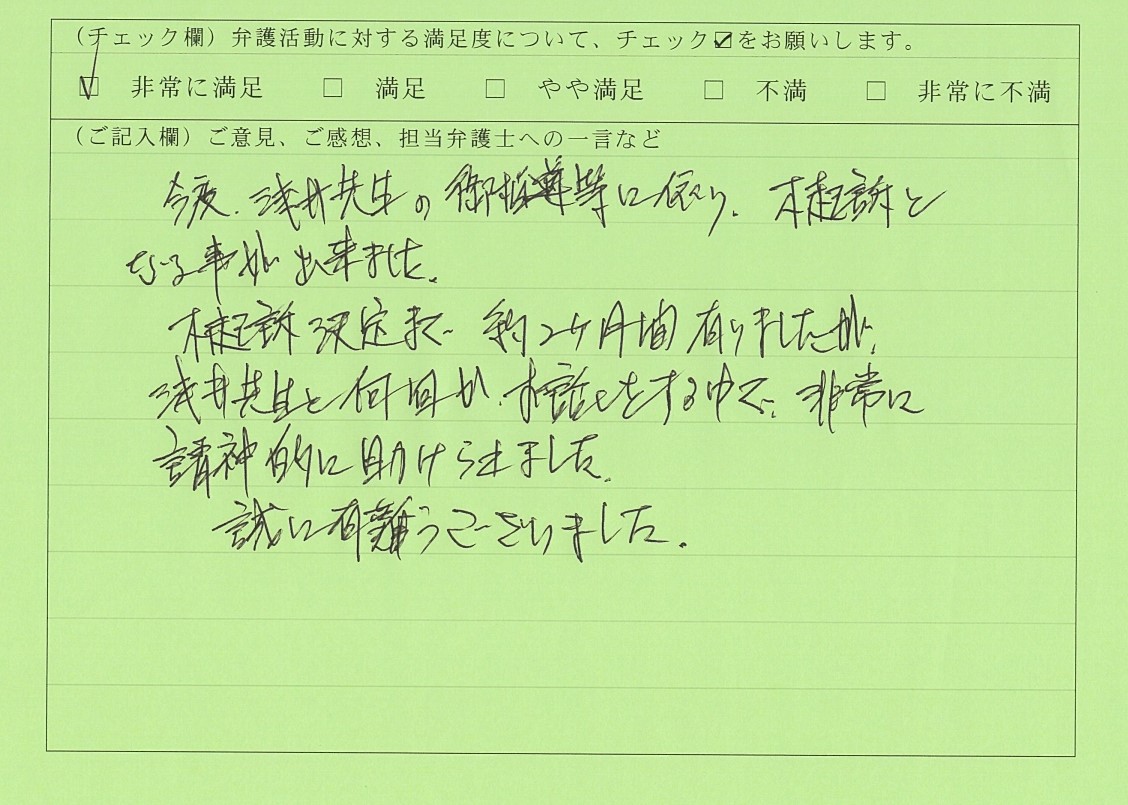 (チェック欄)弁護活動に対する満足度について、チェック☑をお願いします。
☑ 非常に満足 □ 満足 □ やや満足 □ 不満 □ 非常に不満
(ご記入欄)ご意見、ご感想、担当弁護士への一言など
今度、浅井先生の御指導等に依り、不起訴と
なる事が出来ました。
不起訴決定まで約2ヶ月間有りましたが、
浅井先生と何回か、お話しをする中で、非常に
精神的に助けられました。
誠に有難うございました。